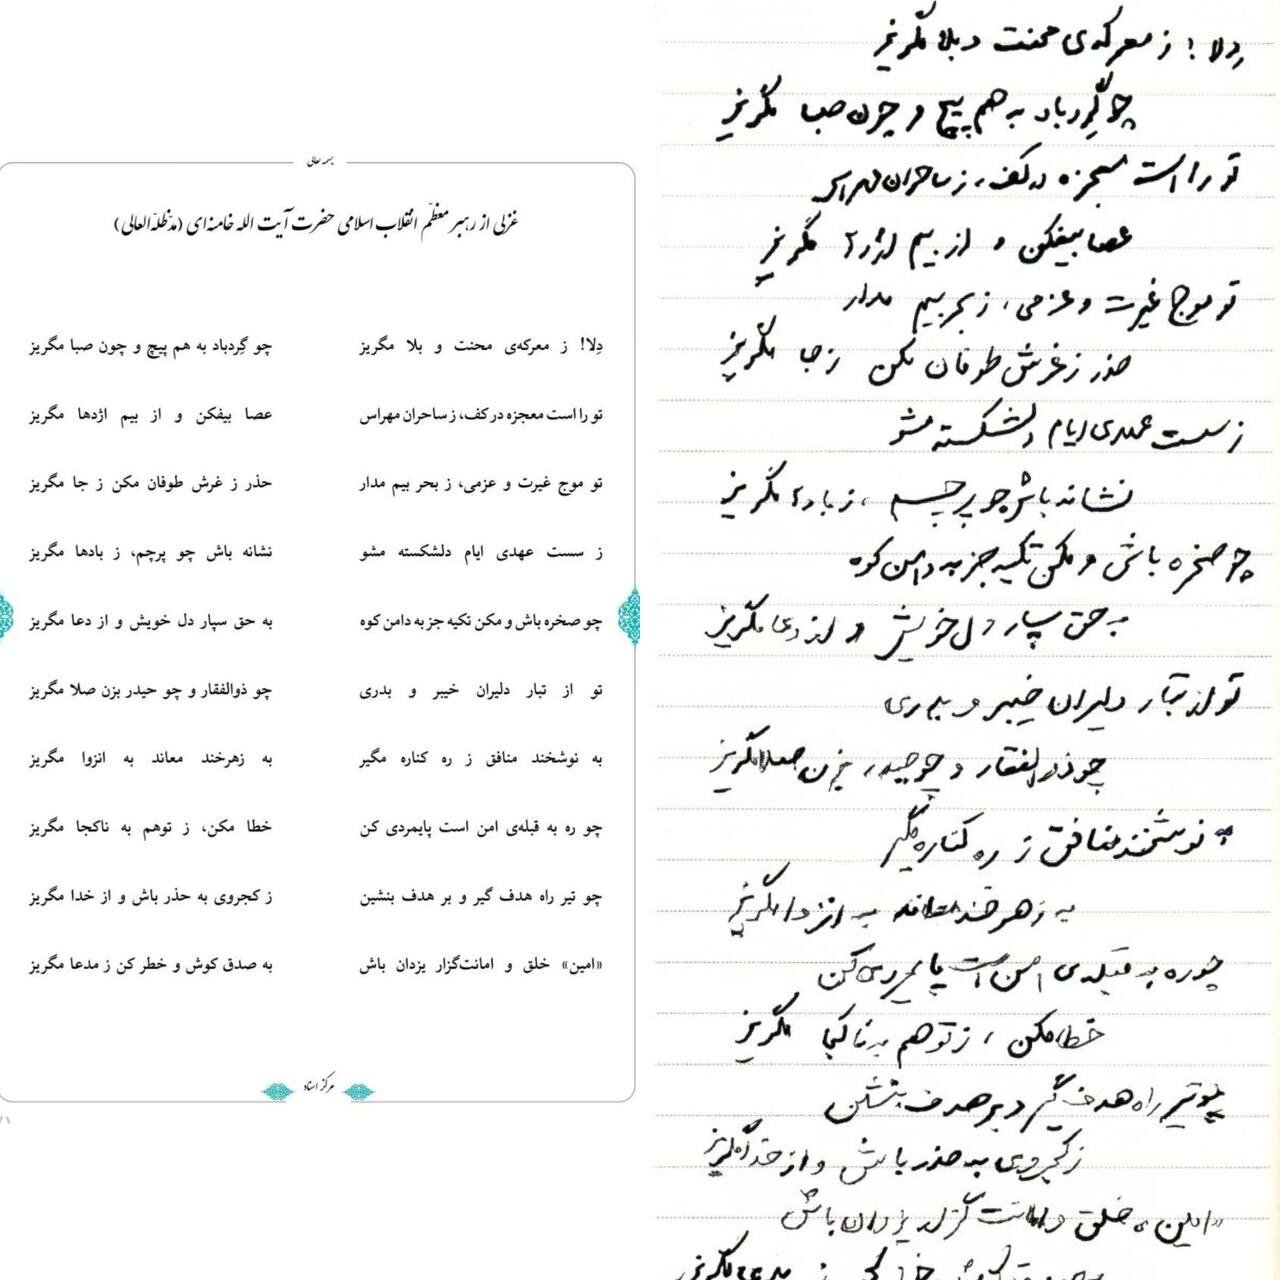 بسمه تعالی
غزلی از رهبر معظّم انقلاب اسلامی حضرت آیت الله خامنه‌ای (مدّظلّه العالی)
دِلا! ز معرکه‌ی محنت و بلا مگریز چو گِردباد به هم پیچ و چون صبا مگریز
تو را است معجزه در کف، ز ساحران مهراس عصا بیفکن و از بیم اژدها مگریز
تو موج غیرت و عزمی، ز بحر بیم مدار حذر ز غرش طوفان مکن ز جا مگریز
ز سست عهدی ایام دلشکسته مشو نشانه باش چو پرچم، ز بادها مگریز
چو صخره باش و مکن تکیه جز به دامن کوه به حق سپار دل خویش و از دعا مگریز
تو از تبار دلیران خیبر و بدری چو ذوالفقار و چو حیدر بزن صلا مگریز
به نوشخند منافق ز ره کناره مگیر به زهرخند معاند به انزوا مگریز
چو ره به قبله‌ی امن است پایمردی کن خطا مکن، ز توهم به ناکجا مگریز
چو تیر راه هدف گیر و بر هدف بنشین ز کجروی به حذر باش و از خدا مگریز
«امین» خلق و امانت‌گزار یزدان باش به صدق کوش و خطر کن ز مدعا مگریز
مرکز اسناد
۷۱
دِلا! ز معرکه‌ی محنت و بلا مگریز
چو گِردباد به هم پیچ و چون صبا مگریز
تو را است معجزه در کف، ز ساحران مهراس
عصا بیفکن و از بیم اژدها مگریز
تو موج غیرت و عزمی، ز بحر بیم مدار
حذر ز غرش طوفان مکن ز جا مگریز
ز سست عهدی ایام دلشکسته مشو
نشانه باش چو پرچم، ز بادها مگریز
چو صخره باش و مکن تکیه جز به دامن کوه
به حق سپار دل خویش و از دعا مگریز
تو از تبار دلیران خیبر و بدری
چو ذوالفقار و چو حیدر، بزن صلا مگریز
به نوشخند منافق ز ره کناره مگیر
به زهرخند معاند به انزوا مگریز
چو ره به قبله‌ی امن است پایمردی کن
خطا مکن، ز توهم به ناکجا مگریز
چو تیر راه هدف گیر و بر هدف بنشین
ز کجروی به حذر باش و از خدا مگریز
«امین» خلق و امانت گزار یزدان باش
ز مدعا مگریز